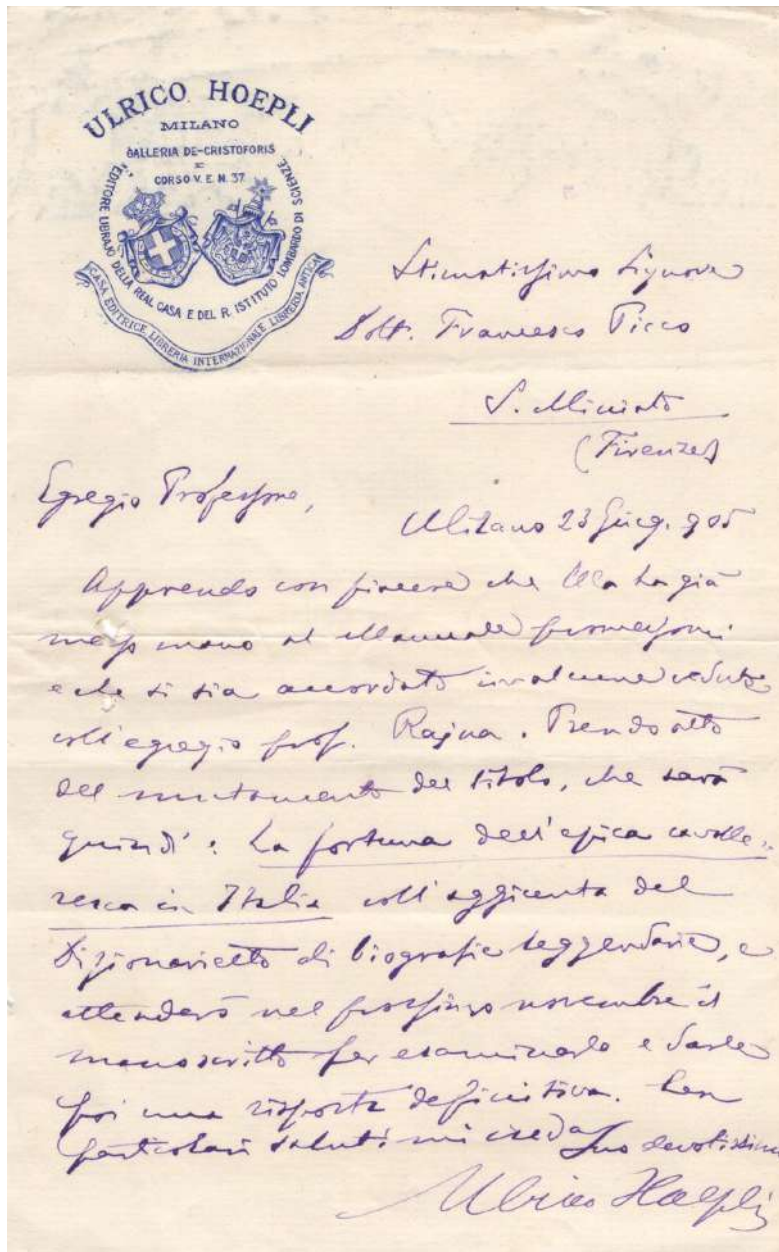 ULRICO HOEPLI
MILANO
GALLERIA DE-CRISTOFORIS
E
CORSO V. E. N. 37
EDITORE LIBRAJO DELLA REAL CASA E DEL R. ISTITUTO LOMBARDO DI SCIENZE
CASA EDITRICE LIBRERIA INTERNAZIONALE LIBRERIA ANTICA
Stimatissimo Signore
Dott. Francesco Picco
S. Miniato
(Firenze)
Egregio Professore,
Milano 23 Giug. 905
Apprendo con piacere che Ella ha già
messo mano al Manuale
e che si sia accordato in alcune vedute
coll'egregio prof. Rajna. Prendo atto
del mutamento del titolo, che sarà
quindi: La fortuna dell'epica cavalle-
resca in Italia coll'aggiunta del
Dizionarietto di biografie leggendarie, e
attenderò nel prossimo novembre il
manoscritto per esaminarlo e darle
poi una risposta definitiva. Con
particolari saluti mi creda Suo devotissimo
Ulrico Hoepli